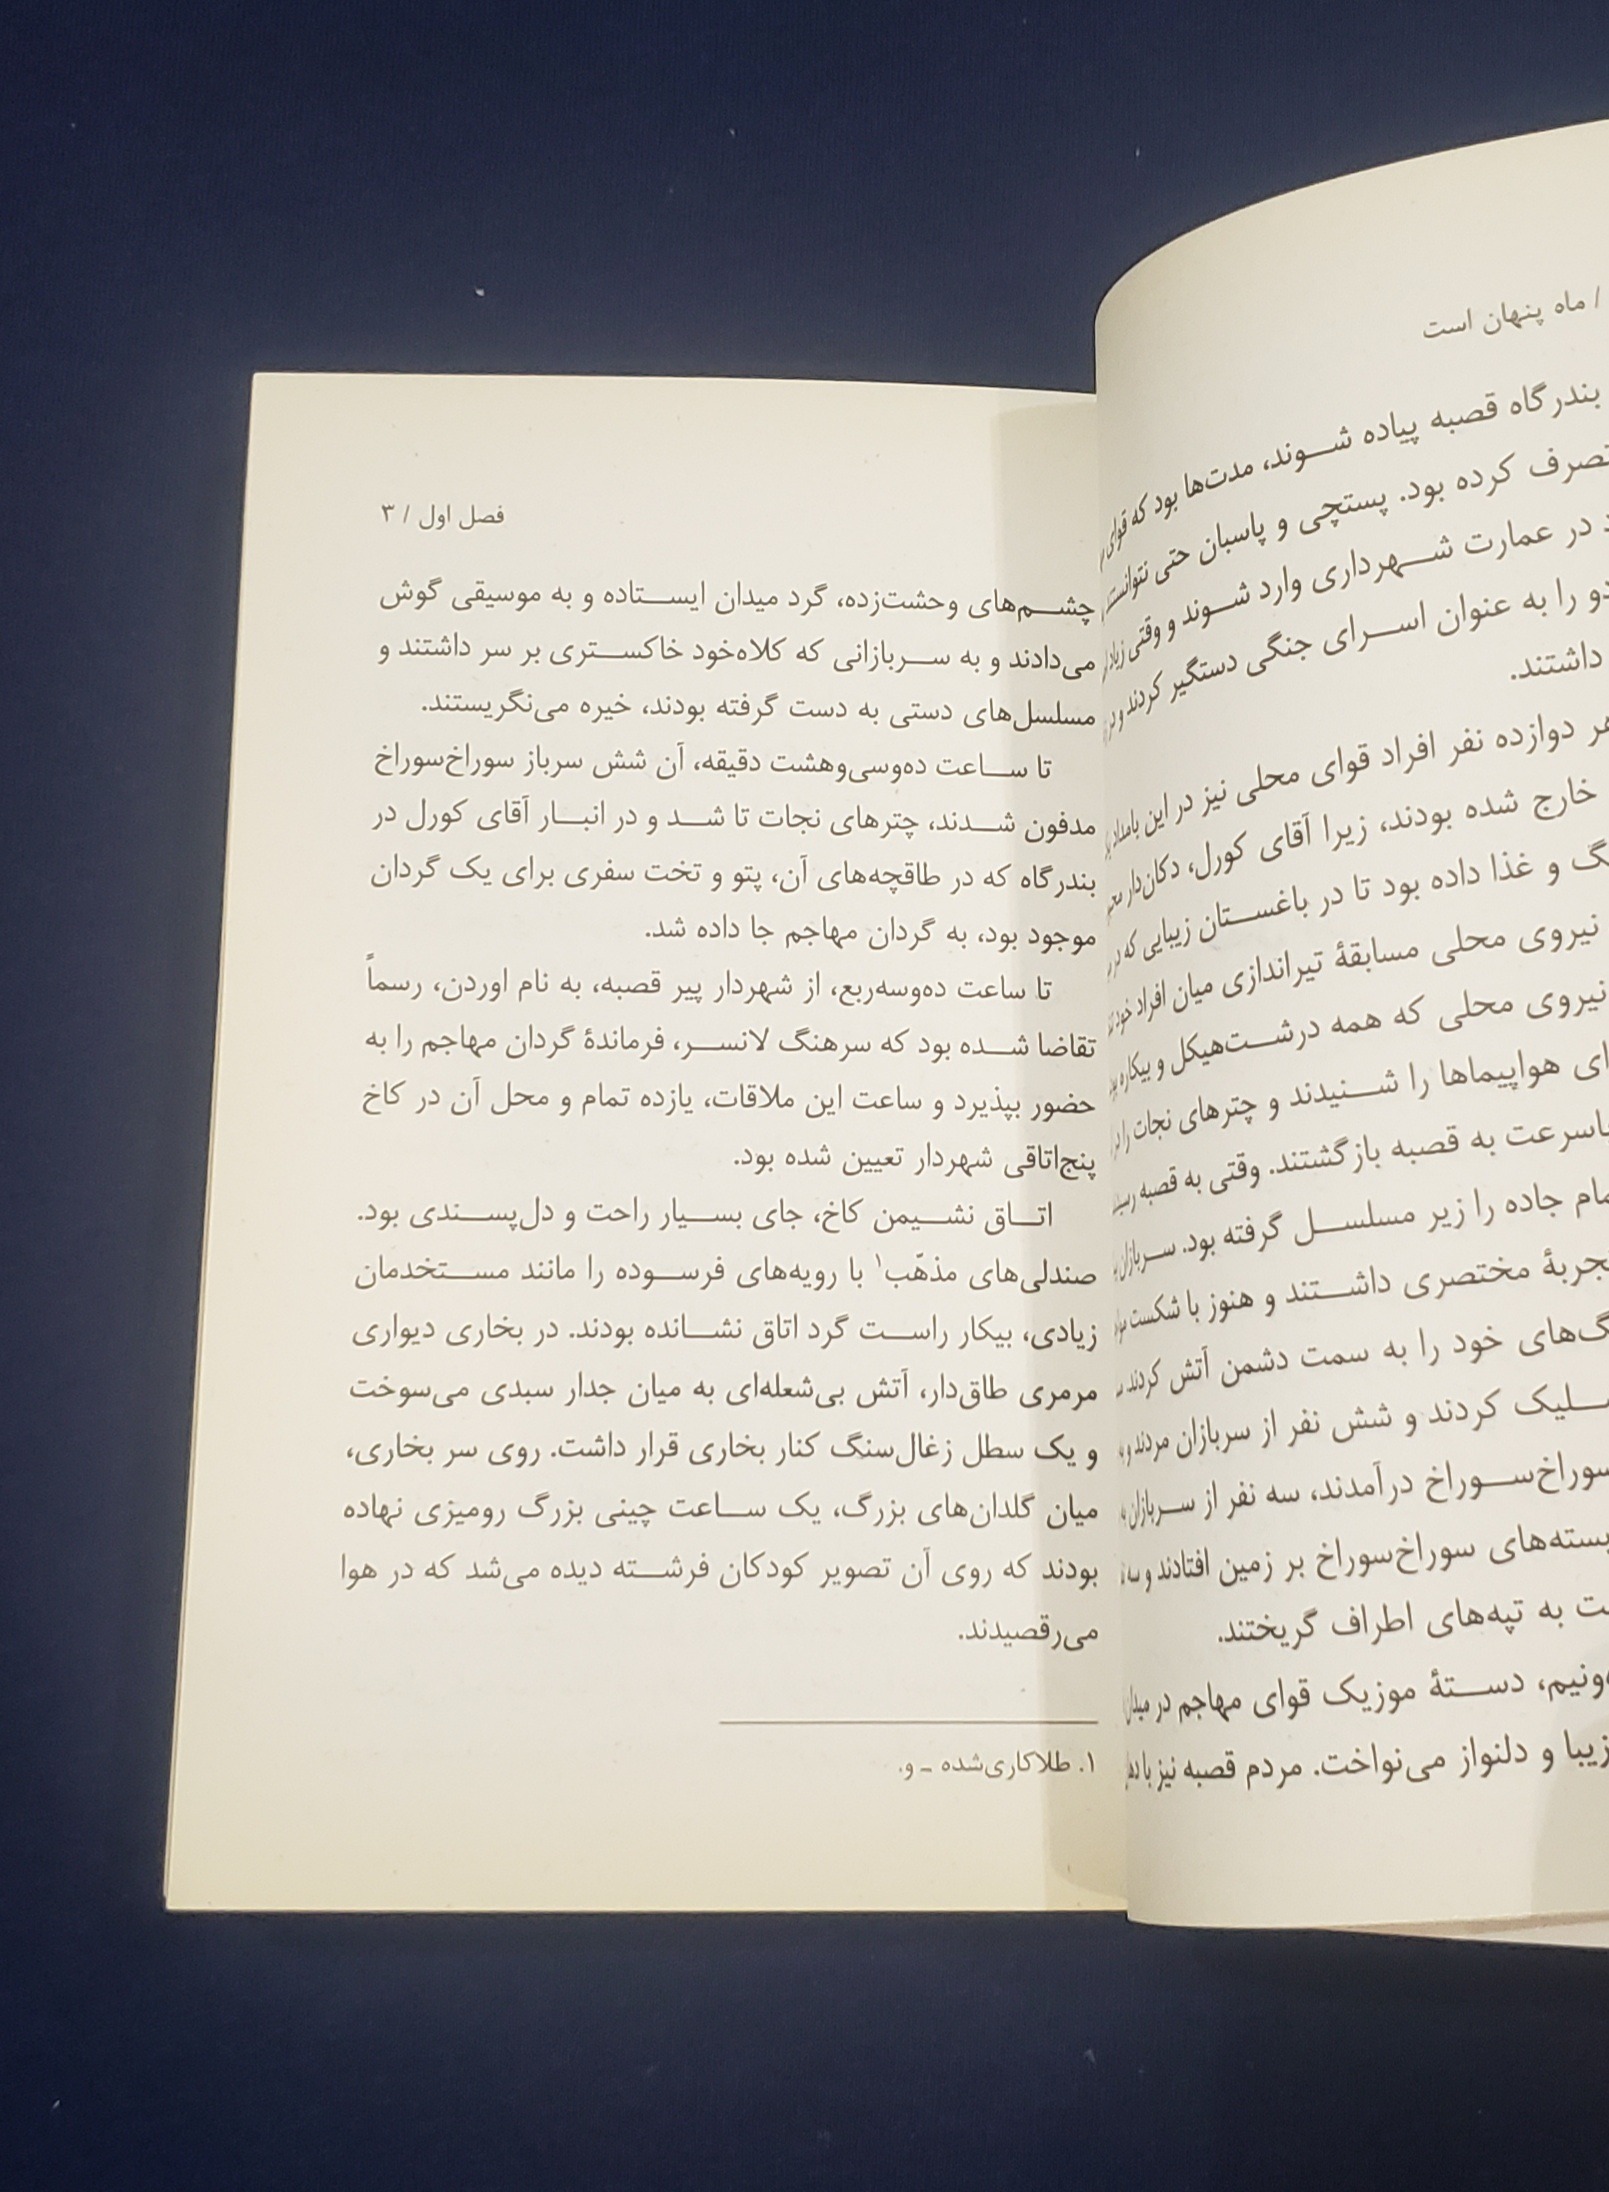 / ماه پنهان است
بندرگاه قصبه پیاده شوند، مدت‌ها بود که قوای
تصرف کرده بود. پستچی و پاسبان حتی نتوانستند
در عمارت شهرداری وارد شوند و وقتی
دو را به عنوان اسرای جنگی دستگیر کردند و در
داشتند.
هر دوازده نفر افراد قوای محلی نیز در این بامداد
خارج شده بودند، زیرا آقای کورل، دکان‌دار
و غذا داده بود تا در باغستان زیبایی که در
نیروی محلی مسابقهٔ تیراندازی میان افراد خود
نیروی محلی که همه درشت‌هیکل و بیکاره
هواپیماها را شنیدند و چترهای نجات را در
باسرعت به قصبه بازگشتند. وقتی به قصبه
جاده را زیر مسلسل گرفته بود. سربازان
تجربهٔ مختصری داشتند و هنوز با شکست
خود را به سمت دشمن آتش کردند
کردند و شش نفر از سربازان مردند و
سوراخ‌سوراخ درآمدند، سه نفر از سربازان
سوراخ‌سوراخ بر زمین افتادند و سه
به تپه‌های اطراف گریختند.
دستهٔ موزیک قوای مهاجم در میدان
زیبا و دلنواز می‌نواخت. مردم قصبه نیز با
فصل اول / ۳
چشم‌های وحشت‌زده، گرد میدان ایستاده و به موسیقی گوش
می‌دادند و به سربازانی که کلاه‌خود خاکستری بر سر داشتند و
مسلسل‌های دستی به دست گرفته بودند، خیره می‌نگریستند.
تا ساعت ده‌وسی‌وهشت دقیقه، آن شش سرباز سوراخ‌سوراخ
مدفون شدند، چترهای نجات تا شد و در انبار آقای کورل در
بندرگاه که در طاقچه‌های آن، پتو و تخت سفری برای یک گردان
موجود بود، به گردان مهاجم جا داده شد.
تا ساعت ده‌وسه‌ربع، از شهردار پیر قصبه، به نام اوردن، رسماً
تقاضا شده بود که سرهنگ لانسر، فرماندهٔ گردان مهاجم را به
حضور بپذیرد و ساعت این ملاقات، یازده تمام و محل آن در کاخ
پنج‌اتاقی شهردار تعیین شده بود.
اتاق نشیمن کاخ، جای بسیار راحت و دل‌پسندی بود.
صندلی‌های مذهّب۱ با رویه‌های فرسوده را مانند مستخدمان
زیادی، بیکار راست گرد اتاق نشانده بودند. در بخاری دیواری
مرمری طاق‌دار، آتش بی‌شعله‌ای به میان جدار سبدی می‌سوخت
و یک سطل زغال‌سنگ کنار بخاری قرار داشت. روی سر بخاری،
میان گلدان‌های بزرگ، یک ساعت چینی بزرگ رومیزی نهاده
بودند که روی آن تصویر کودکان فرشته دیده می‌شد که در هوا
می‌رقصیدند.
۱. طلاکاری‌شده ـ و.